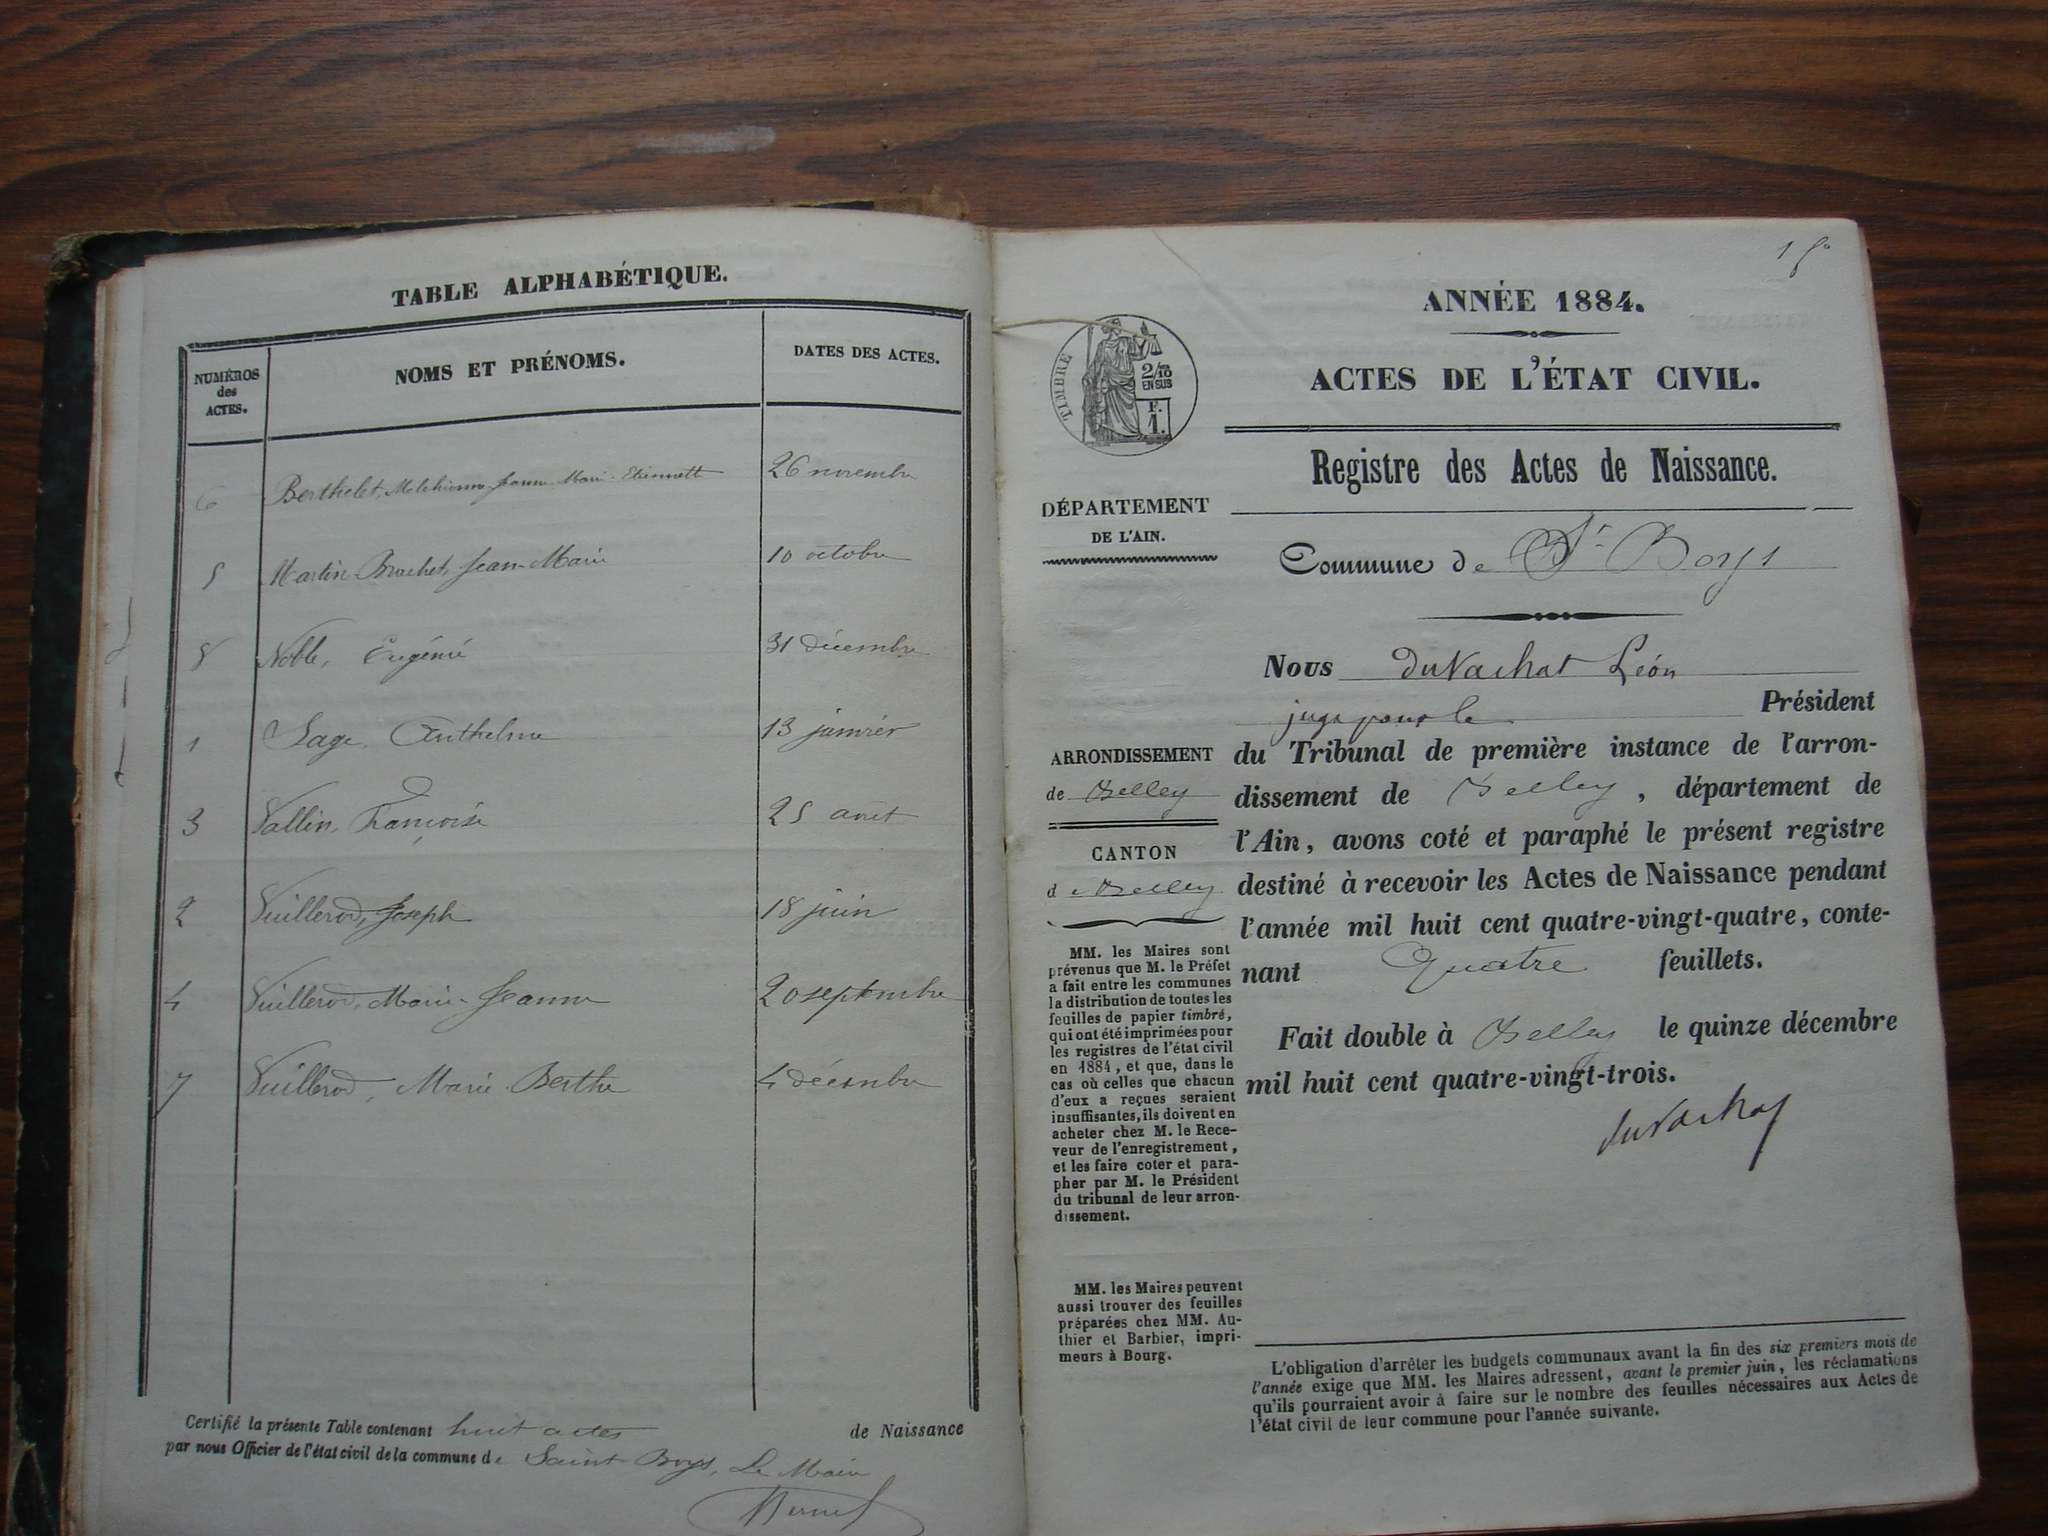 TABLE ALPHABÉTIQUE.
NUMÉROS
des
ACTES.
NOMS ET PRÉNOMS.
DATES DES ACTES.
6 Berthelet, Melchionne Jeanne Marie Etiennett 26 novembre
5 Martin-Brochet, Jean-Marie 10 octobre
8 Noble, Eugénie 31 décembre
1 Sage, Anthelme 13 janvier
3 Vallin, Françoise 25 août
2 Vuillerod, Joseph 18 juin
4 Vuillerod, Marie-Jeanne 20 septembre
7 Vuillerod, Marie-Berthe 4 décembre
Certifié la présente Table contenant huit actes de Naissance
par nous Officier de l'état civil de la commune de Saint Boys, Le Maire
ANNÉE 1884.
ACTES DE L'ÉTAT CIVIL.
TIMBRE
2/10
EN SUS
F.
1.
Registre des Actes de Naissance.
DÉPARTEMENT
DE L'AIN.
Commune de St Boys
Nous duVachat Léon
juge pour le Président
du Tribunal de première instance de l'arron-
dissement de Belley, département de
l'Ain, avons coté et paraphé le présent registre
destiné à recevoir les Actes de Naissance pendant
l'année mil huit cent quatre-vingt-quatre, conte-
nant Quatre feuillets.
Fait double à Belley le quinze décembre
mil huit cent quatre-vingt-trois.
duVachat
ARRONDISSEMENT
de Belley
CANTON
de Belley
MM. les Maires sont
prévenus que M. le Préfet
a fait entre les communes
la distribution de toutes les
feuilles de papier timbré,
qui ont été imprimées pour
les registres de l'état civil
en 1884, et que, dans le
cas où celles que chacun
d'eux a reçues seraient
insuffisantes, ils doivent en
acheter chez M. le Rece-
veur de l'enregistrement,
et les faire coter et para-
pher par M. le Président
du tribunal de leur arron-
dissement.
MM. les Maires peuvent
aussi trouver des feuilles
préparées chez MM. Au-
thier et Barbier, impri-
meurs à Bourg.
L'obligation d'arrêter les budgets communaux avant la fin des six premiers mois de
l'année exige que MM. les Maires adressent, avant le premier juin, les réclamations
qu'ils pourraient avoir à faire sur le nombre des feuilles nécessaires aux Actes de
l'état civil de leur commune pour l'année suivante.